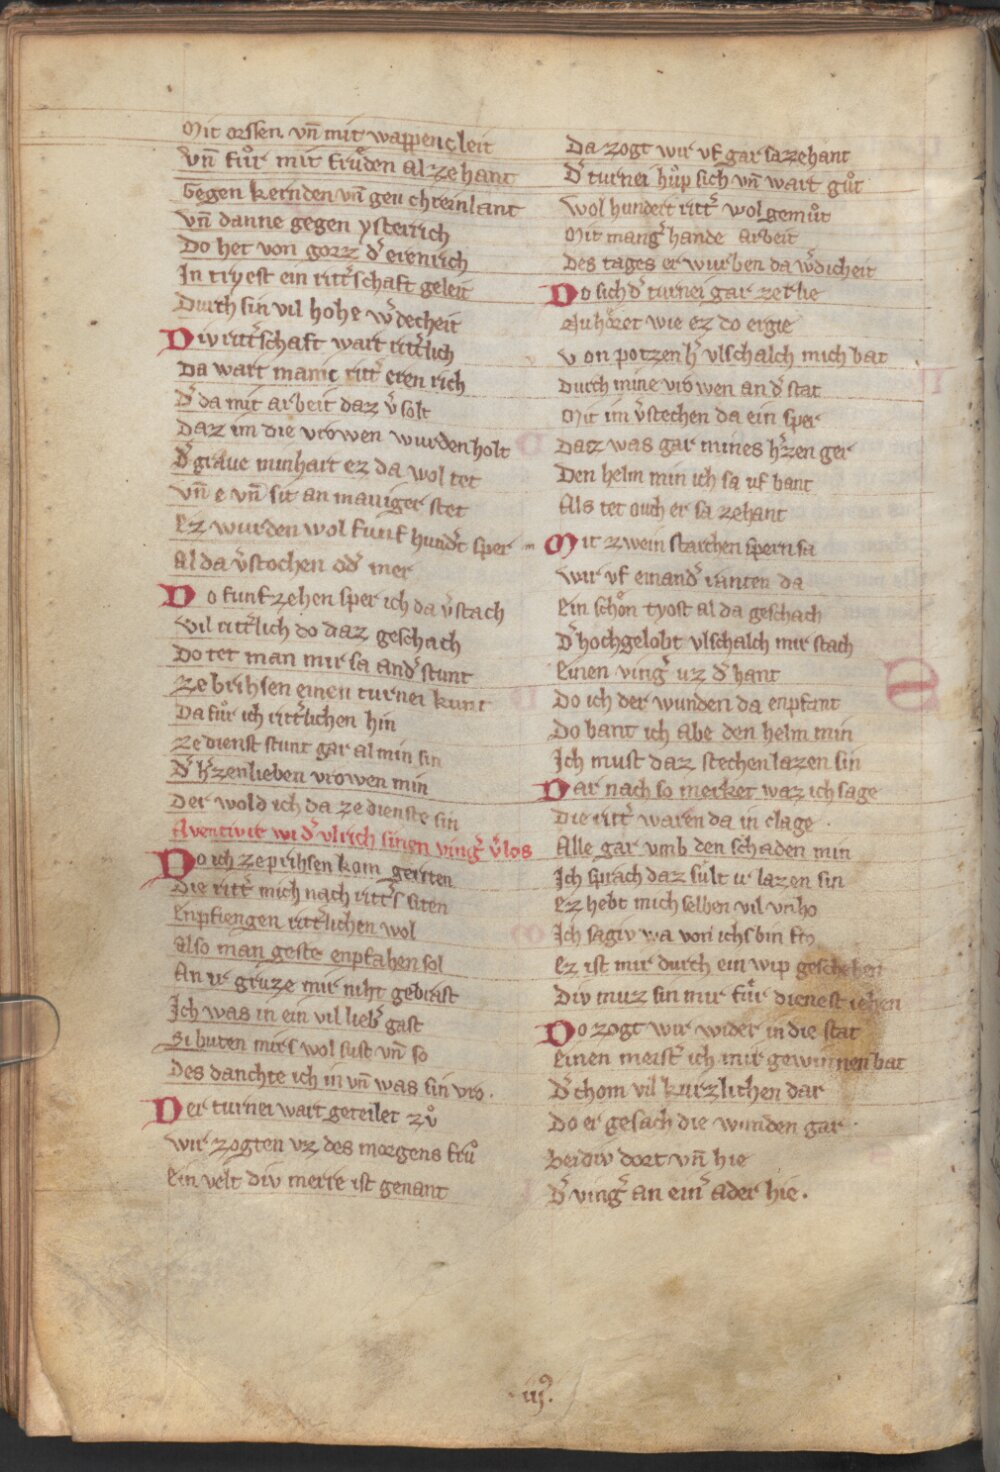 Mit orssen vn̄ mit wappencleit
Vn̄ fůr mit frůden alzehant
Gegen kernden vn̄ gen chreinlant
Vn̄ danne gegen ysterrich
Do het von gorz d͛ erenrich
In tryest ein ritt͛schaft geleit
Durch sin vil hohe w͛decheit
Div ritt͛schaft wart ritt͛lich
Da wart manic ritt͛ eren rich
D͛ da mit arbeit daz v͛solt
Daz im die vrowen wurden holt
D͛ graue meinhart ez da wol tet
Vn̄ e vn̄ sit an maniger stet
Ez wurden wol funf hund͛t sper
Al da v͛stochen od͛ mer
Do funfzehen sper ich da v͛stach
Vil ritt͛lich do daz geschach
Do tet man mir sa and͛ stunt
Ze brihsen einen turnei kunt
Da fůr ich ritt͛lichen hin
Ze dienst stunt gar al min sin
D͛ h͛zenlieben vrowen min
Der wold ich da ze dienste sin
Aventivre wi d͛ vlrich sinen ving͛ v͛los
Do ich ze prihsen kom geriten
Die ritt͛ mich nach ritt͛s siten
Enpfiengen ritt͛lichen wol
Also man geste enpfahen sol
An ir gruze mir niht gebrast
Ich was in ein vil lieb͛ gast
Si buten mirs wol sust vn̄ so
Des danchte ich in vn̄ was sin vro.
Der turnei wart geteilet zů
Wir zogten vz des morgens frů
Ein velt div merre ist genant
Da zogt wir vf gar sazehant
D͛ turnei hůp sich vn̄ wart gůt
Wol hundert ritt͛ wol gemůt
Mit mang͛ hande arbeit
Des tages er wurben da w͛dicheit
Do sich d͛ turnei gar zerlie
Nu hőret wie ez do ergie
Von potzen h͛ vlschalch mich bat
Durch mine vrowen an d͛ stat
Mit im v͛stechen da ein sper
Daz was gar mines h͛zen ger
Den helm min ich sa uf bant
Als tet ouch er sa zehant
Mit zwein starchen spern sa
Wir vf einand͛ ranten da
Ein schőn tyost al da geschach
D͛ hochgelobt vlschalch mir stach
Einen ving͛ uz d͛ hant
Do ich der wunden da enpfant
Do bant ich abe den helm min
Ich must daz stechen lazen sin
Dar nach so merket waz ich sage
Die ritt͛ waren da in clage
Alle gar vmb den schaden min
Ich sprach daz sult ir lazen sin
Ez hebt mich selben vil vnho
Ich sag iv wa von ichs bin fro
Ez ist mir durch ein wip geschehen
Div muz sin mir fůr dienest iehen
Do zogt wir wider in die stat
Einen meist͛ ich mir gewinnen bat
D͛ chom vil kurzlichen dar
Do er gesach die wunden gar
Beidiv dort vn̄ hie
D͛ ving͛ an ein͛ ader hie.